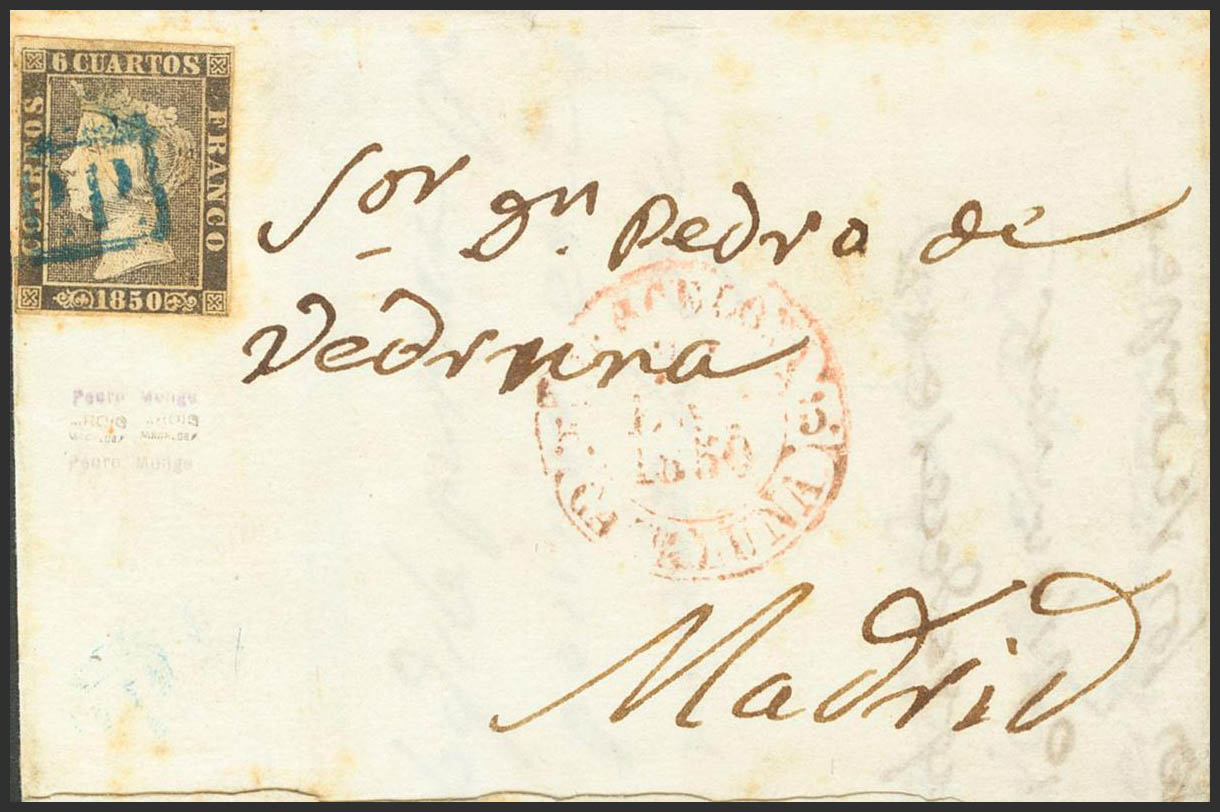 6 CUARTOS
CORREOS
FRANCO
1850
Sor Dn. Pedro de
Vedruna
BARCELONA
1850
Pedro Monge
Pedro Monge
Madrid